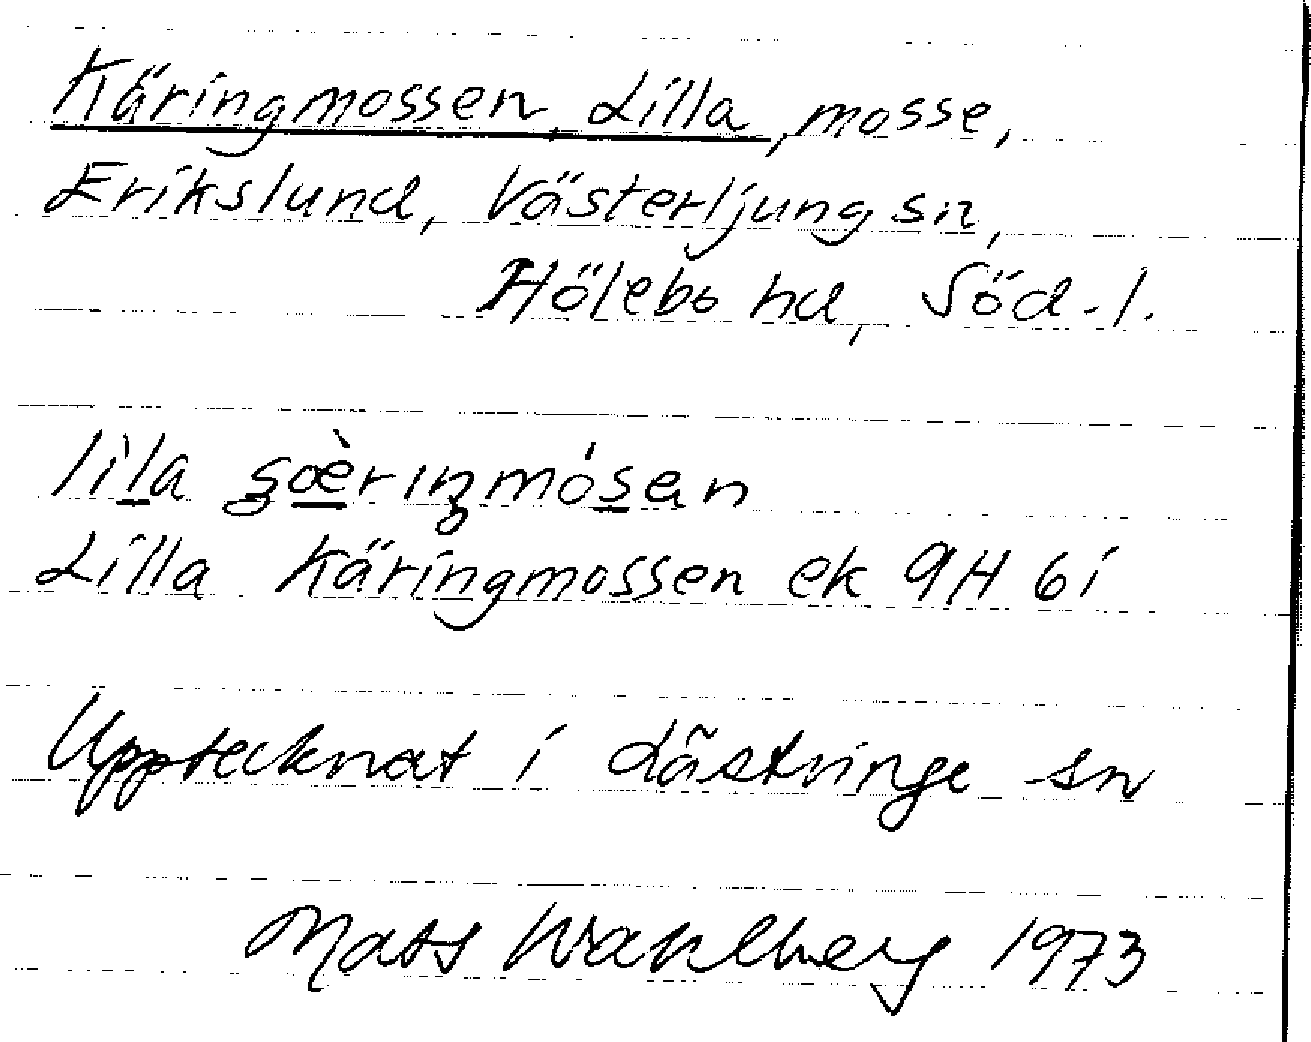 Käringmossen, Lilla, mosse,
Erikslund, Västerljung sn,
Hölebo hd, Söd. l.
lìla ʂœ̀rıŋmósen
Lilla Käringmossen ek 9H 6i
Upptecknat i Lästringe sn
Mats Wahlberg 1973